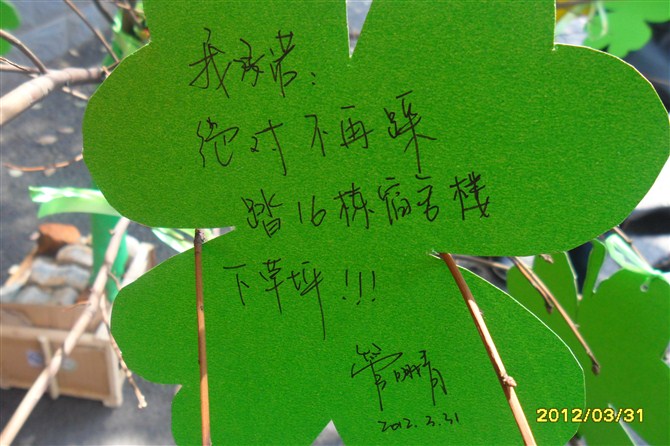 我承诺：
绝对不再踩
踏16栋宿舍楼
下草坪!!!
管明清
2012.3.31
2012/03/31